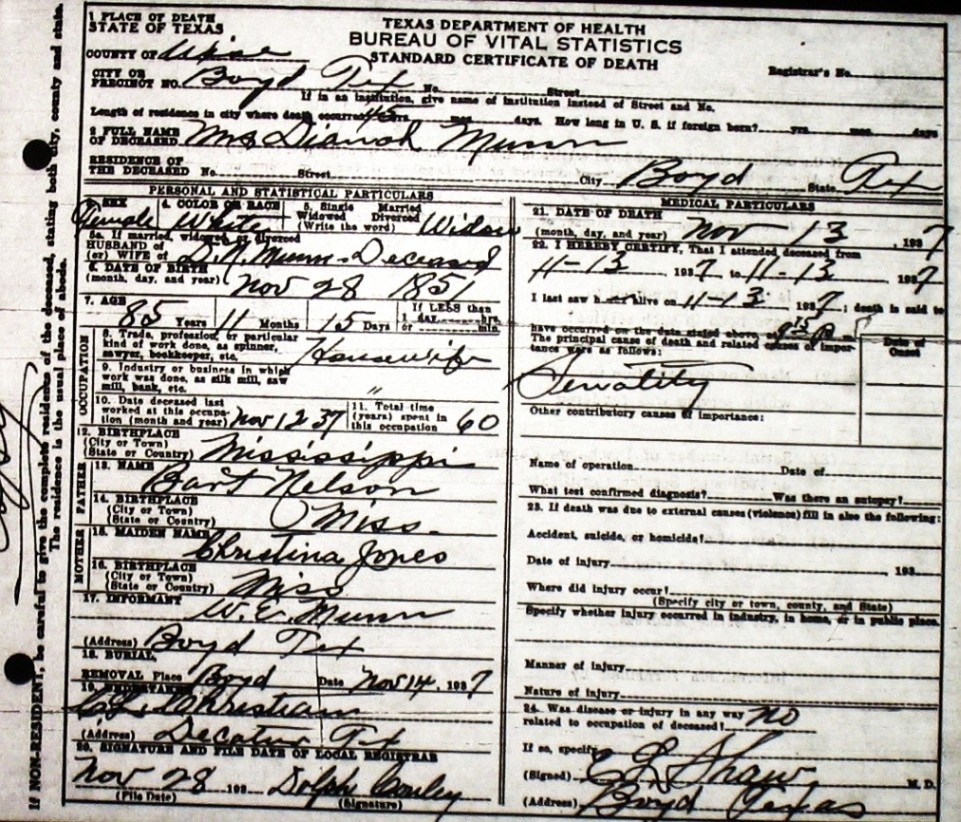 1 PLACE OF DEATH
STATE OF TEXAS
TEXAS DEPARTMENT OF HEALTH
BUREAU OF VITAL STATISTICS
STANDARD CERTIFICATE OF DEATH
COUNTY OF Wise
Registrar's No.
CITY OR
PRECINCT NO. Boyd Tex No. Street
If in an institution, give name of institution instead of Street and No.
Length of residence in city where death occurred 45 yrs. mos. days. How long in U. S. if foreign born? yrs. mos. days
2 FULL NAME
OF DECEASED Mrs Dianah Munn
RESIDENCE OF
THE DECEASED No. Street City Boyd State Tex
PERSONAL AND STATISTICAL PARTICULARS
3. SEX Female
4. COLOR OR RACE White
5. Single Married
Widowed Divorced
(Write the word) Widow
5a. If married, widowed or divorced
HUSBAND of
(or) WIFE of D. N. Munn - Deceased
6. DATE OF BIRTH
(month, day, and year) Nov 28 1851
7. AGE
85 Years 11 Months 15 Days
If LESS than
1 day hrs.
or min.
OCCUPATION
8. Trade, profession, or particular
kind of work done, as spinner,
sawyer, bookkeeper, etc. Housewife
9. Industry or business in which
work was done, as silk mill, saw
mill, bank, etc. "
10. Date deceased last
worked at this occupa-
tion (month and year) Nov 12 37
11. Total time
(years) spent in
this occupation 60
12. BIRTHPLACE
(City or Town)
(State or Country) Mississippi
FATHER
13. NAME Bart Nelson
14. BIRTHPLACE
(City or Town)
(State or Country) Miss.
MOTHER
15. MAIDEN NAME Christina Jones
16. BIRTHPLACE
(City or Town)
(State or Country) Miss
17. INFORMANT W. E. Munn
(Address) Boyd Tex
18. BURIAL,
REMOVAL Place Boyd Date Nov 14, 1937
19. UNDERTAKER
Christian
(Address) Decatur Tex
20. SIGNATURE AND FILE DATE OF LOCAL REGISTRAR
Nov 28 193 Dolph
(File Date) (Signature)
MEDICAL PARTICULARS
21. DATE OF DEATH
(month, day, and year) Nov 13, 1937
22. I HEREBY CERTIFY, That I attended deceased from
11-13 1937 to 11-13 1937
I last saw h alive on 11-13 1937; death is said to
have occurred on the date stated above
The principal cause of death and related causes of impor-
tance were as follows:
Date of
Onset
Senality
Other contributory causes of importance:
Name of operation Date of
What test confirmed diagnosis? Was there an autopsy?
23. If death was due to external causes (violence) fill in also the following:
Accident, suicide, or homicide?
Date of injury , 193
Where did injury occur?
(Specify city or town, county, and State)
Specify whether injury occurred in industry, in home, or in public place.
Manner of injury
Nature of injury
24. Was disease or injury in any way
related to occupation of deceased? no
If so, specify
(Signed) C L Shaw M. D.
(Address) Boyd Texas
If NON-RESIDENT, be careful to give the complete residents of the deceased, stating both city, county and state.
The residence is the usual place of abode.